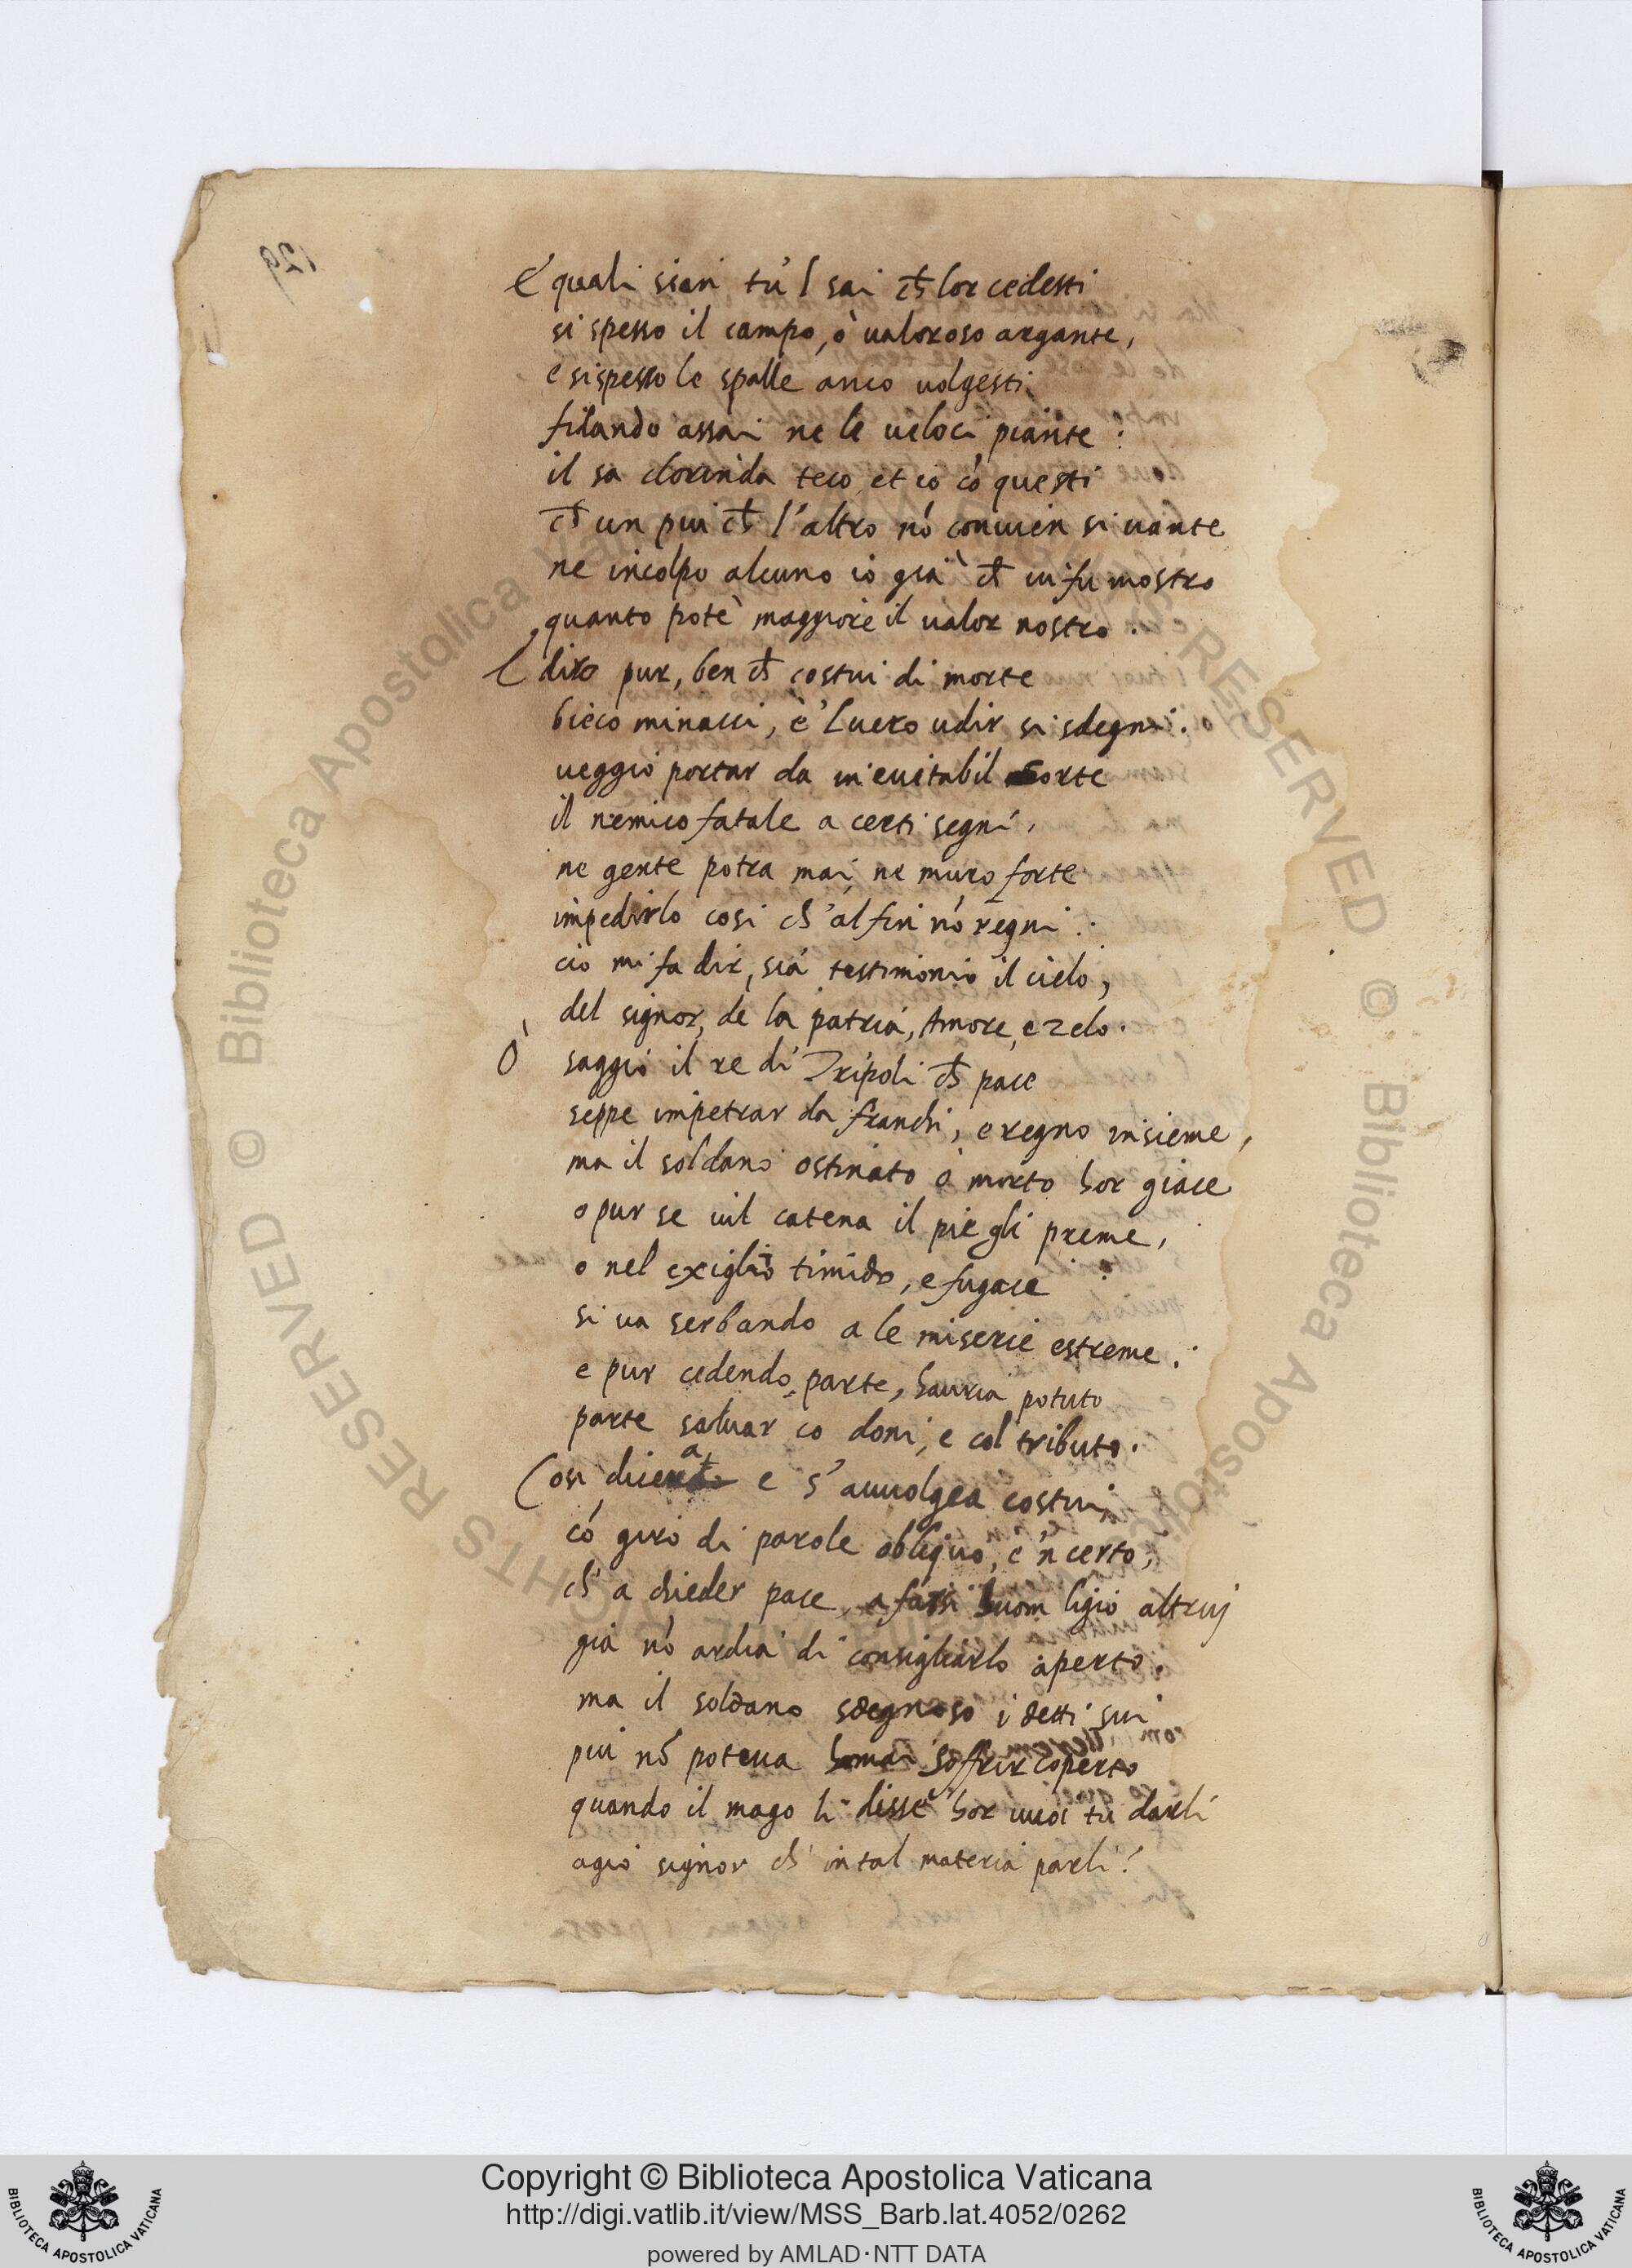 E quali sien tu'l sai ch̄ lor cedesti
si spesso il campo, ò ualoroso argante,
e si spesso le spalle anco uolgesti
fidando assai ne le ueloci piante:
il sa clorinda teco, et io cō questi
ch̄ un piu ch̄ l'altro nō conuien si uante
ne incolpo alcuno io già ch̄ iui fu mostro
quanto potè maggiore il ualor nostro.
E dirò pur, ben ch̄ costui di morte
bieco minacci, e'l uero udir si sdegni:
ueggio portar da ineuitabil sorte
il nemico fatale a certi segni,
ne gente potra mai, ne muro forte
impedirlo cosi ch'al fin nō regni:
ciò mi fa dir, sia testimonio il cielo,
del signor, de la patria, Amore, e zelo.
O saggio il re di Tripoli ch̄ pace
seppe impetrar da franchi, e regno insieme,
ma il soldano ostinato ò morto hor giace
o pur se uil catena il piè gli preme,
o nel exiglio timido, e fugace
si ua serbando a le miserie estreme:
e pur cedendo parte, hauria potuto
parte saluar co doni, e col tributo.
Cosi dicea e s'auuolgea costui
cō giro di parole obliquo, e'ncerto,
ch'a chieder pace, a farsi huom ligio altruj
già nō ardia di consigliarlo aperto.
ma il soldano sdegnoso i detti sui
piu nō poteua homai soffrir coperto
quando il mago li disse hor uuoi tu darli
agio signor ch' in tal materia parli?
129
Copyright © Biblioteca Apostolica Vaticana
http://digi.vatlib.it/view/MSS_Barb.lat.4052/0262
powered by AMLAD·NTT DATA
BIBLIOTECA APOSTOLICA VATICANA
BIBLIOTECA APOSTOLICA VATICANA